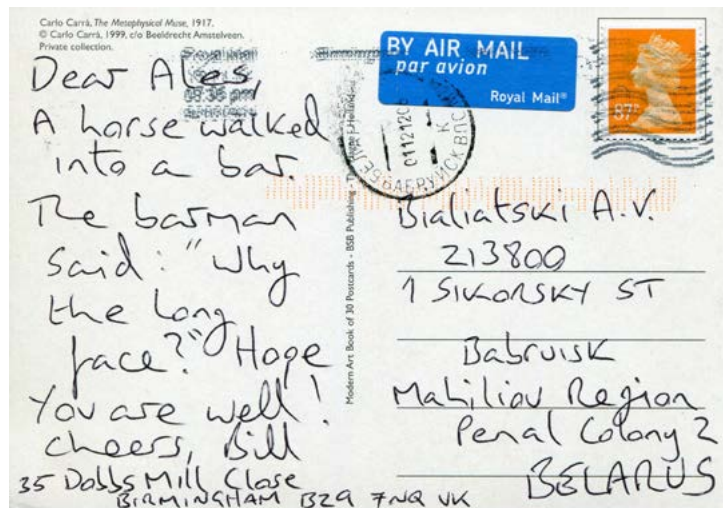 Carlo Carrà, The Metaphysical Muse, 1917.
© Carlo Carrà, 1999, c/o Beeldrecht Amstelveen.
Private collection.
Dear Ales,
A horse walked
into a bar.
The barman
said: "Why
the long
face?" Hope
You are well!
cheers, Bill
35 Dobbs Mill Close
BIRMINGHAM B29 7NQ UK
Modern Art Book of 30 Postcards - BSB Publishing
BY AIR MAIL
par avion
Royal Mail®
87P
011212
БАБРУЙСК
Bialiatski A.V.
213800
1 SIKORSKY ST
Babruisk
Mahiliou Region
Penal Colony 2
BELARUS